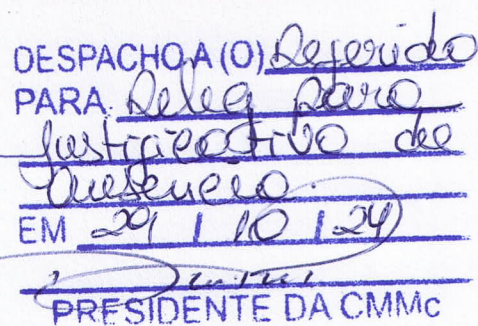 DESPACHO A (O) Deferido
PARA. Deleg para
Justificativo de
Ausencia.
EM 29 / 10 / 24
PRESIDENTE DA CMMc